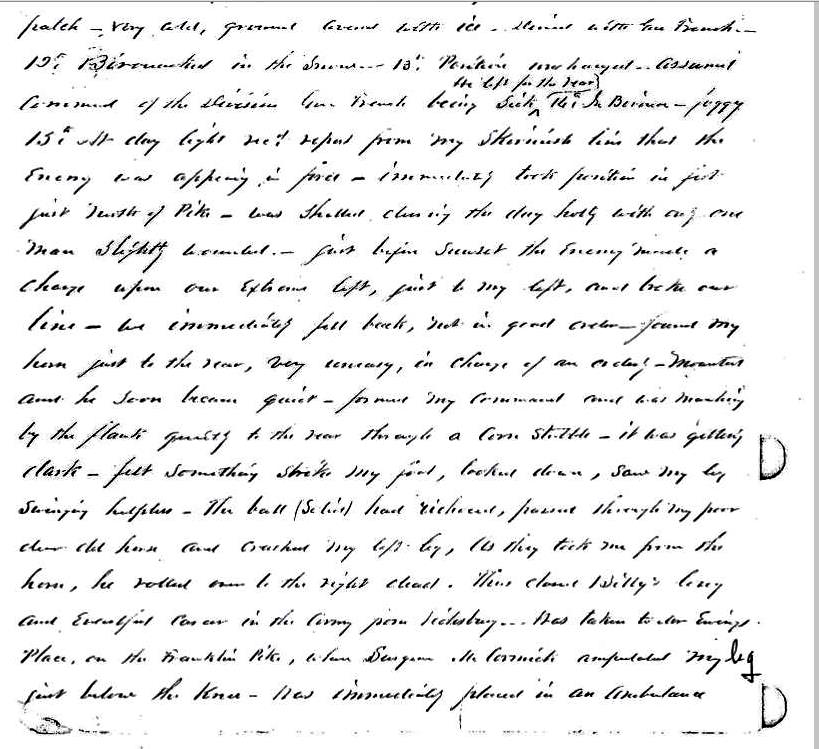 patch – very cold, ground covered with ice – dined with Gen French –
12th Bivouacked in the Snow – 13th Position unchanged – assumed
he left for the rear)
Command of the Division Gen French being Sick 14th In Bivouac – foggy
15th At day light recd report from my Skirmish line that the
Enemy was appearing in force – immediately took position in
just South of Pike – was Shelled during the day hotly with only one
man Slightly wounded. – just before Sunset the Enemy made a
charge upon our Extreme left, just to my left, and broke our
line – we immediately fell back, not in good order – found my
horse just to the rear, very uneasy, in charge of an orderly – Mounted
and he soon became quiet – formed my Command and was marching
by the flank quietly to the rear through a Corn Stubble – it was getting
dark – felt Something strike my foot, looked down, saw my leg
Swinging helpless – The ball (Solid) had ricocheed, passed through my poor
dear old horse and crushed my left leg, As they took me from the
horse, he rolled over to the right dead. Thus closed Billy's long
and Eventful career in the Army from Vicksburg... Was taken to Ewings
Place, on the Franklin Pike, where Surgeon McCormick amputated my leg
just below the Knee – Was immediately placed in an Ambulance